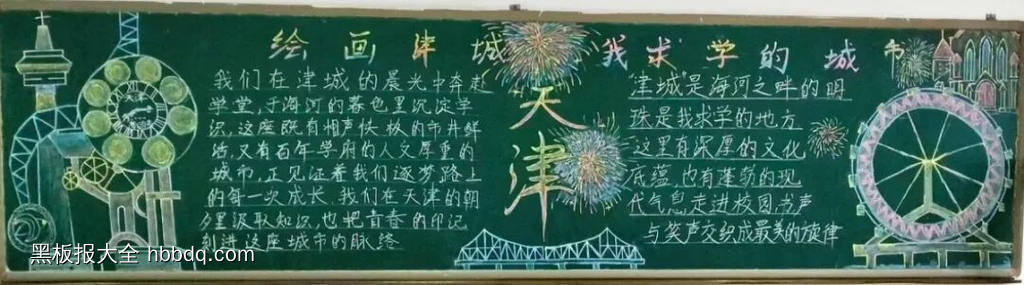 绘画津城 我求学的城市
我们在津城的晨光中奔赴
学堂,于海河的暮色里沉淀学
识,这座既有相声快板的市井鲜
活,又有百年学府的人文厚重的
城市,正见证着我们逐梦路上
的每一次成长.我们在天津的朝
夕里汲取知识,也把青春的印记
刻进这座城市的脉络
天津
"津城"是海河之畔的明
珠是我求学的地方
这里有深厚的文化
底蕴,也有蓬勃的现
代气息走进校园,书声
与笑声交织成最美的旋律
黑板报大全 hbbdq.com